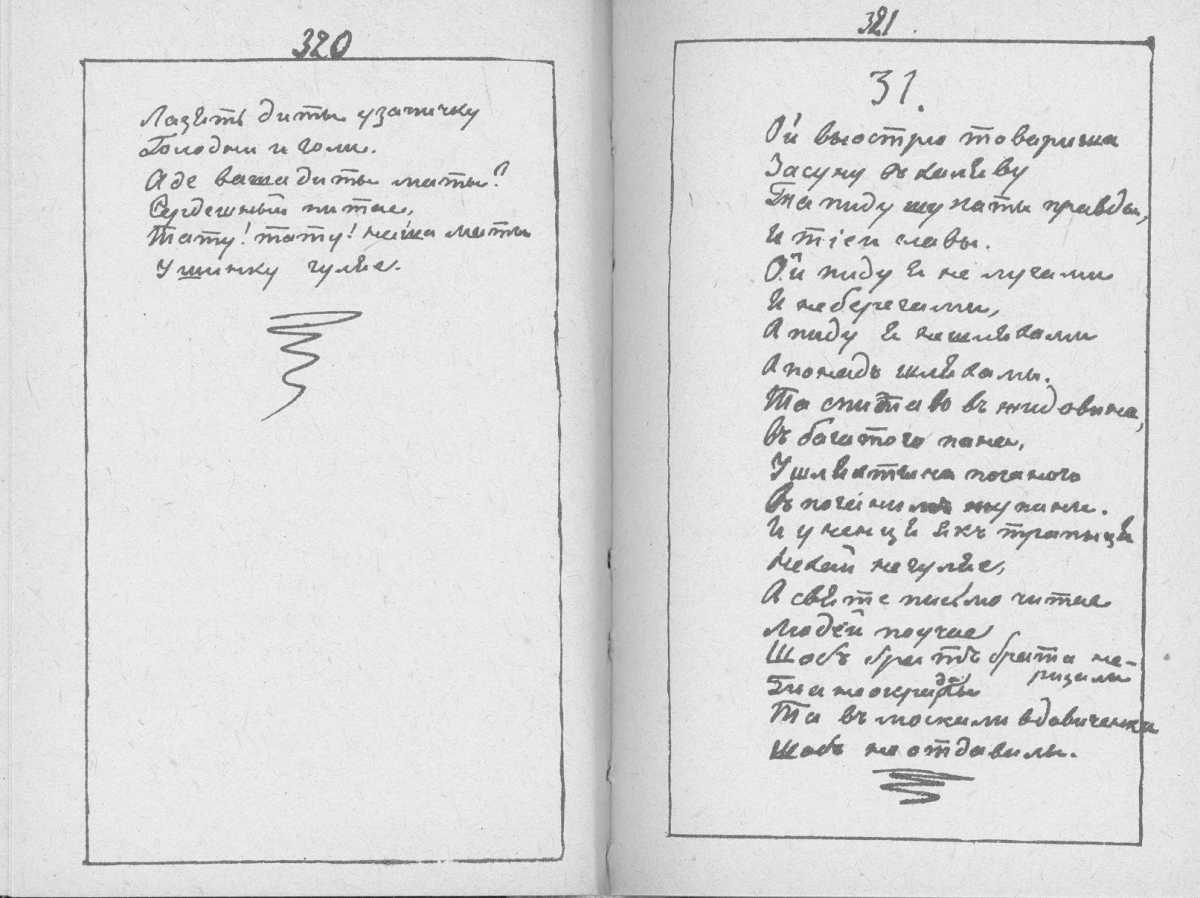 320
Лазять дити у запичку
Голодни и голи.
А де ваша дити мати?
Сердешный питае,
Тату! тату! наша мати
У шинку гуляе.
321
31.
Ой выострю товариша
Засуну въ халяву
Та пиду шукати правды,
И тіеи славы.
Ой пиду я не лугами
И не берегами,
А пиду я не шляхами
А понадъ шляхами.
Та спитаю въ жидовина,
Въ багатого пана,
У шляхтича поганого
Въ поганимъ жупани.
И у ченця якъ трапыця
Нехай не гуляе,
А святе письмо читае
Людей поучае
Щобъ братъ брата не-
ризали
Та не окрадалы
Та въ москали вдовиченка
Щобъ не отдавилы.